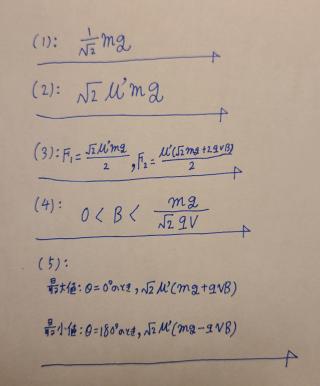 (1): 1/√2 mg
(2): √2 μ'mg
(3): F₁ = √2 μ'mg / 2 , F₂ = μ'(√2 mg + 2qvB) / 2
(4): 0 < B < mg / √2 qV
(5):
最大値: θ = 0° のとき, √2 μ'(mg + qvB)
最小値: θ = 180° のとき, √2 μ'(mg - qvB)